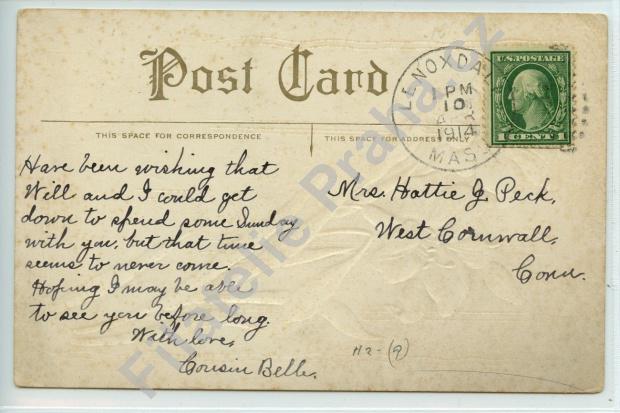 Post Card
THIS SPACE FOR CORRESPONDENCE
THIS SPACE FOR ADDRESS ONLY
LENOXDALE
PM
10
APR
1914
MASS
U.S. POSTAGE
1 CENT 1
Have been wishing that
Will and I could get
down to spend some Sunday
with you, but that time
seems to never come.
Hoping I may be able
to see you before long.
With love,
Cousin Belle.
Mrs. Hattie J. Peck,
West Cornwall,
Conn.
H2-(9)
Filatelie Praha.cz